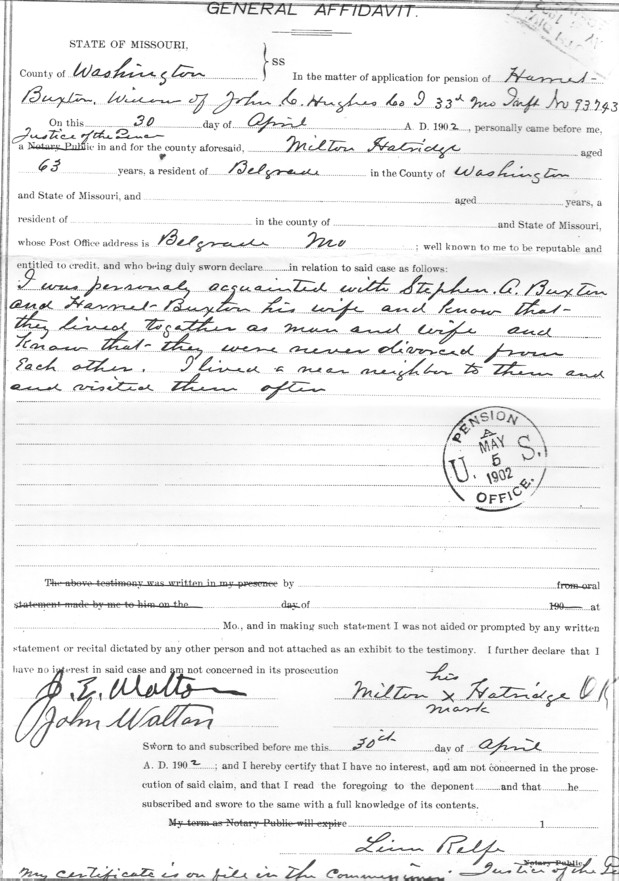 GENERAL AFFIDAVIT.
STATE OF MISSOURI,
SS
County of Washington In the matter of application for pension of Harriet
Buxton, Widow of John C. Hughes Co I 33d Mo Inft No 93743
On this 30 day of April A. D. 1902, personally came before me,
Justice of the Peace
a Notary Public in and for the county aforesaid, Milton Hatridge aged
63 years, a resident of Belgrade in the County of Washington
and State of Missouri, and aged years, a
resident of in the county of and State of Missouri,
whose Post Office address is Belgrade Mo ; well known to me to be reputable and
entitled to credit, and who being duly sworn declare in relation to said case as follows:
I was personaly acquainted with Stephen. A. Buxton
and Harriet Buxton his wife and know that
they lived together as man and wife and
Know that they were never divorced from
Each other. I lived a near neighbor to them and
and visited them often
PENSION
A
MAY
U. 5 S.
1902
OFFICE.
The above testimony was written in my presence by from oral
statement made by me to him on the day of 190 at
Mo., and in making such statement I was not aided or prompted by any written
statement or recital dictated by any other person and not attached as an exhibit to the testimony. I further declare that I
have no interest in said case and am not concerned in its prosecution
his
J. E. Walton Milton X Hatridge OK
mark
John Walton
Sworn to and subscribed before me this 30th day of April
A. D. 1902 ; and I hereby certify that I have no interest, and am not concerned in the prose-
cution of said claim, and that I read the foregoing to the deponent and that he
subscribed and swore to the same with a full knowledge of its contents.
My term as Notary Public will expire 1
Linn Relfe
Notary Public
My certificate is on file in the Justice of the